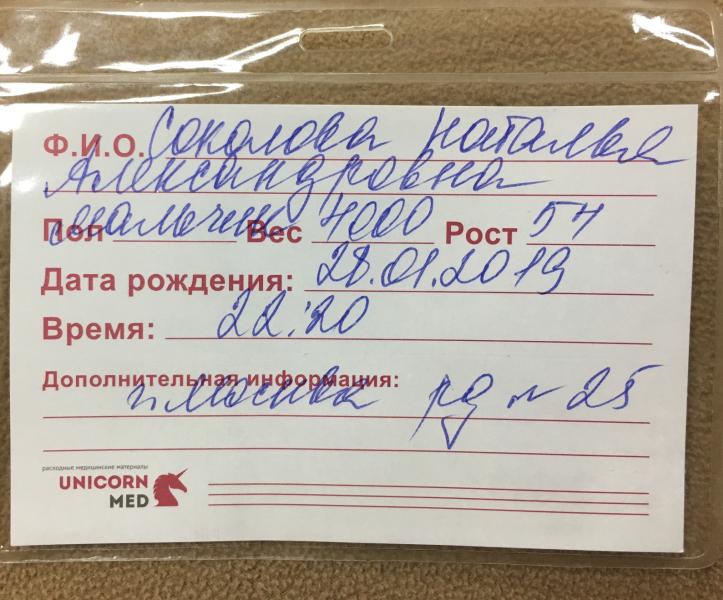 Ф.И.О. Соколова Наталья
Александровна
Пол мальчик Вес 4000 Рост 54
Дата рождения: 28.01.2019
Время: 22:20
Дополнительная информация:
г. Москва рд № 25
расходные медицинские материалы
UNICORN
MED